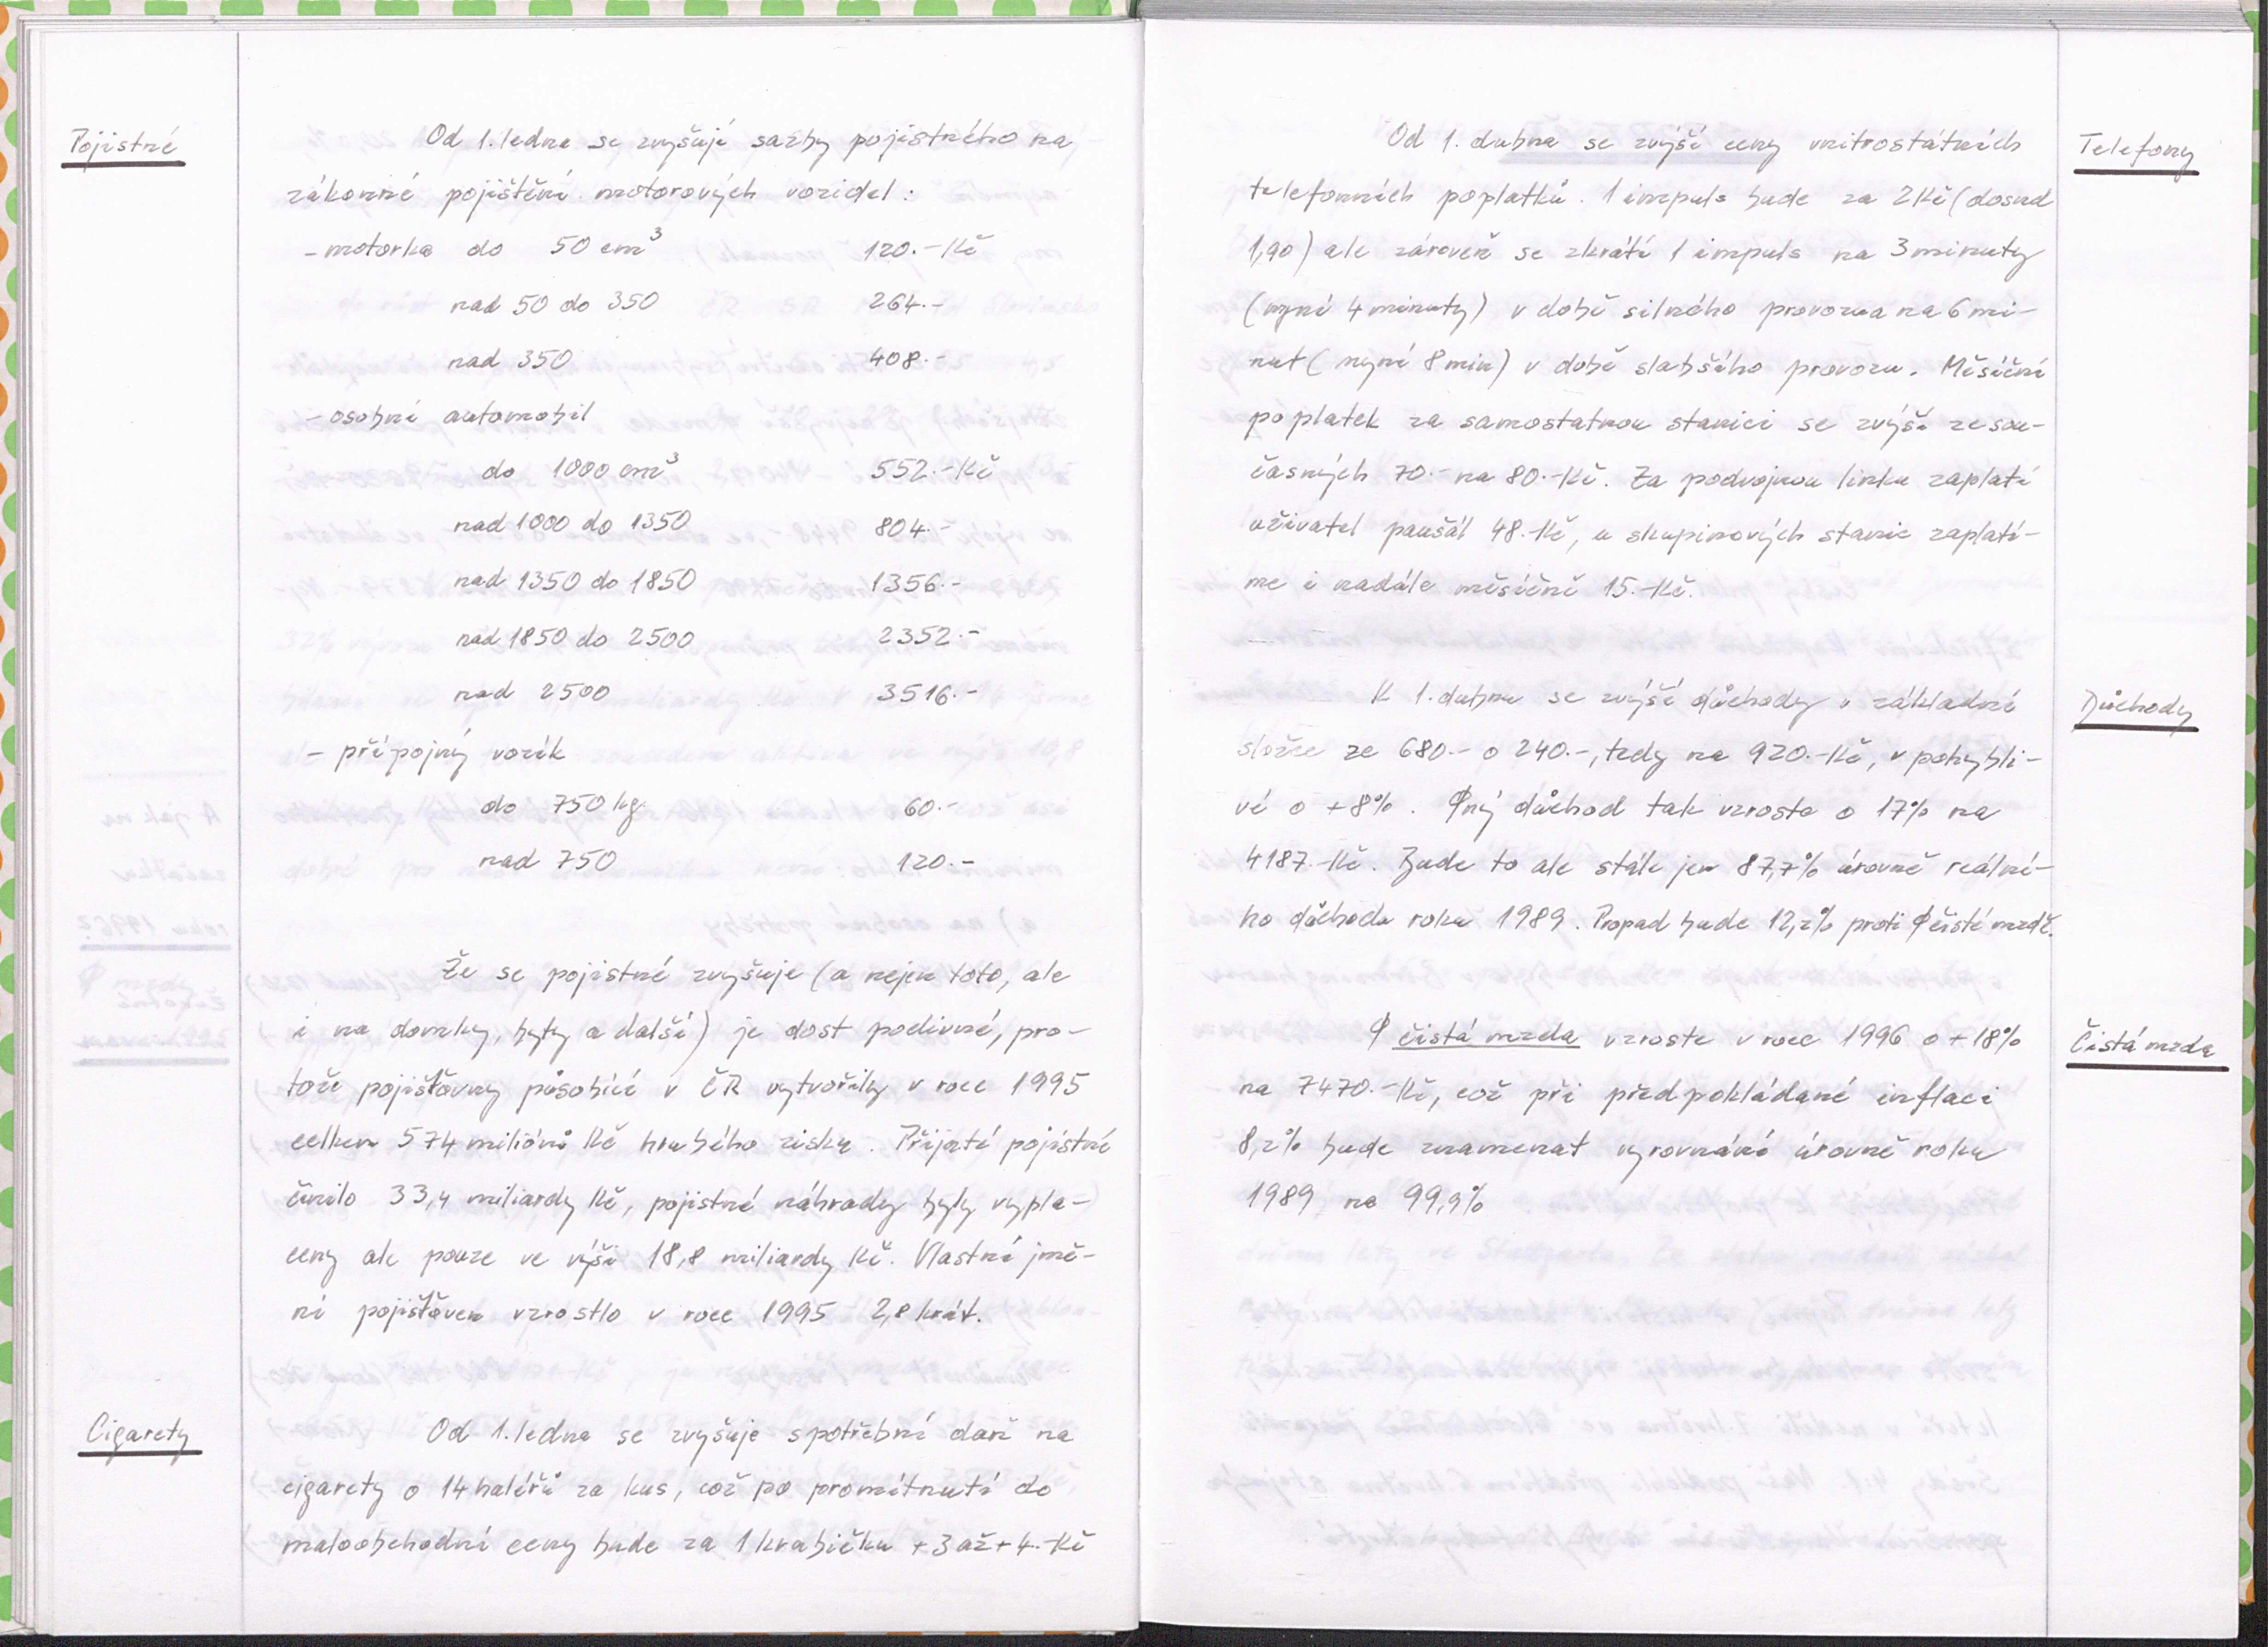 Pojistné
Od 1. ledna se zvyšují sazby pojistného na
zákonné pojištění motorových vozidel:
- motorka do 50 cm³ 120.- Kč
nad 50 do 350 264.-
nad 350 408.-
- osobní automobil
do 1000 cm³ 552.- Kč
nad 1000 do 1350 804.-
nad 1350 do 1850 1356.-
nad 1850 do 2500 2352.-
nad 2500 3516.-
- přípojný vozík
do 750 kg 60.-
nad 750 120.-
Že se pojistné zvyšuje (a nejen toto, ale
i na domky, byty a další) je dost podivné, pro-
tože pojišťovny působící v ČR vytvořily v roce 1995
celkem 574 miliónů Kč hrubého zisku. Přijaté pojistné
činilo 33,4 miliardy Kč, pojistné náhrady byly vypla-
ceny ale pouze ve výši 18,8 miliardy Kč. Vlastní jmě-
ní pojišťoven vzrostlo v roce 1995 2,8 krát.
Cigarety
Od 1. ledna se zvyšuje spotřební daň na
cigarety o 14 haléřů za kus, což po promítnutí do
maloobchodní ceny bude za 1 krabičku +3 až +4.- Kč
Telefony
Od 1. dubna se zvýší ceny vnitrostátních
telefonních poplatků. 1 impuls bude za 2 Kč (dosud
1,90) ale zároveň se zkrátí 1 impuls na 3 minuty
(nyní 4 minuty) v době silného provozu a na 6 mi-
nut (nyní 8 min) v době slabšího provozu. Měsíční
poplatek za samostatnou stanici se zvýší ze sou-
časných 70.- na 80.- Kč. Za podvojnou linku zaplatí
uživatel paušál 48.- Kč, u skupinových stanic zaplatí-
me i nadále měsíčně 15.- Kč.
Důchody
K 1. dubnu se zvýší důchody v základní
složce ze 680.- o 240.-, tedy na 920.- Kč, v pohybli-
vé o +8%. Øný důchod tak vzroste o 17% na
4187.- Kč. Bude to ale stále jen 87,7% úrovně reálné-
ho důchodu roku 1989. Propad bude 12,2% proti Ø čisté mzdě.
Čistá mzda
Ø čistá mzda vzroste v roce 1996 o +18%
na 7470.- Kč, což při předpokládané inflaci
8,2% bude znamenat vyrovnání úrovně roku
1989 na 99,9%